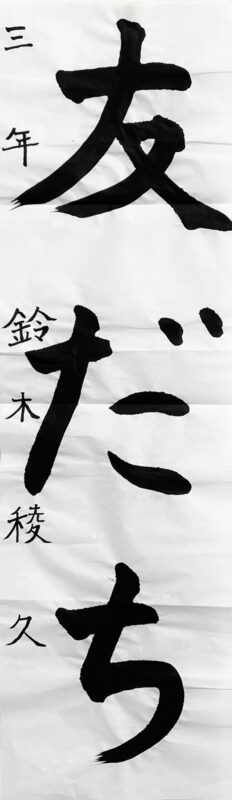 友だち
三年 鈴木稜久